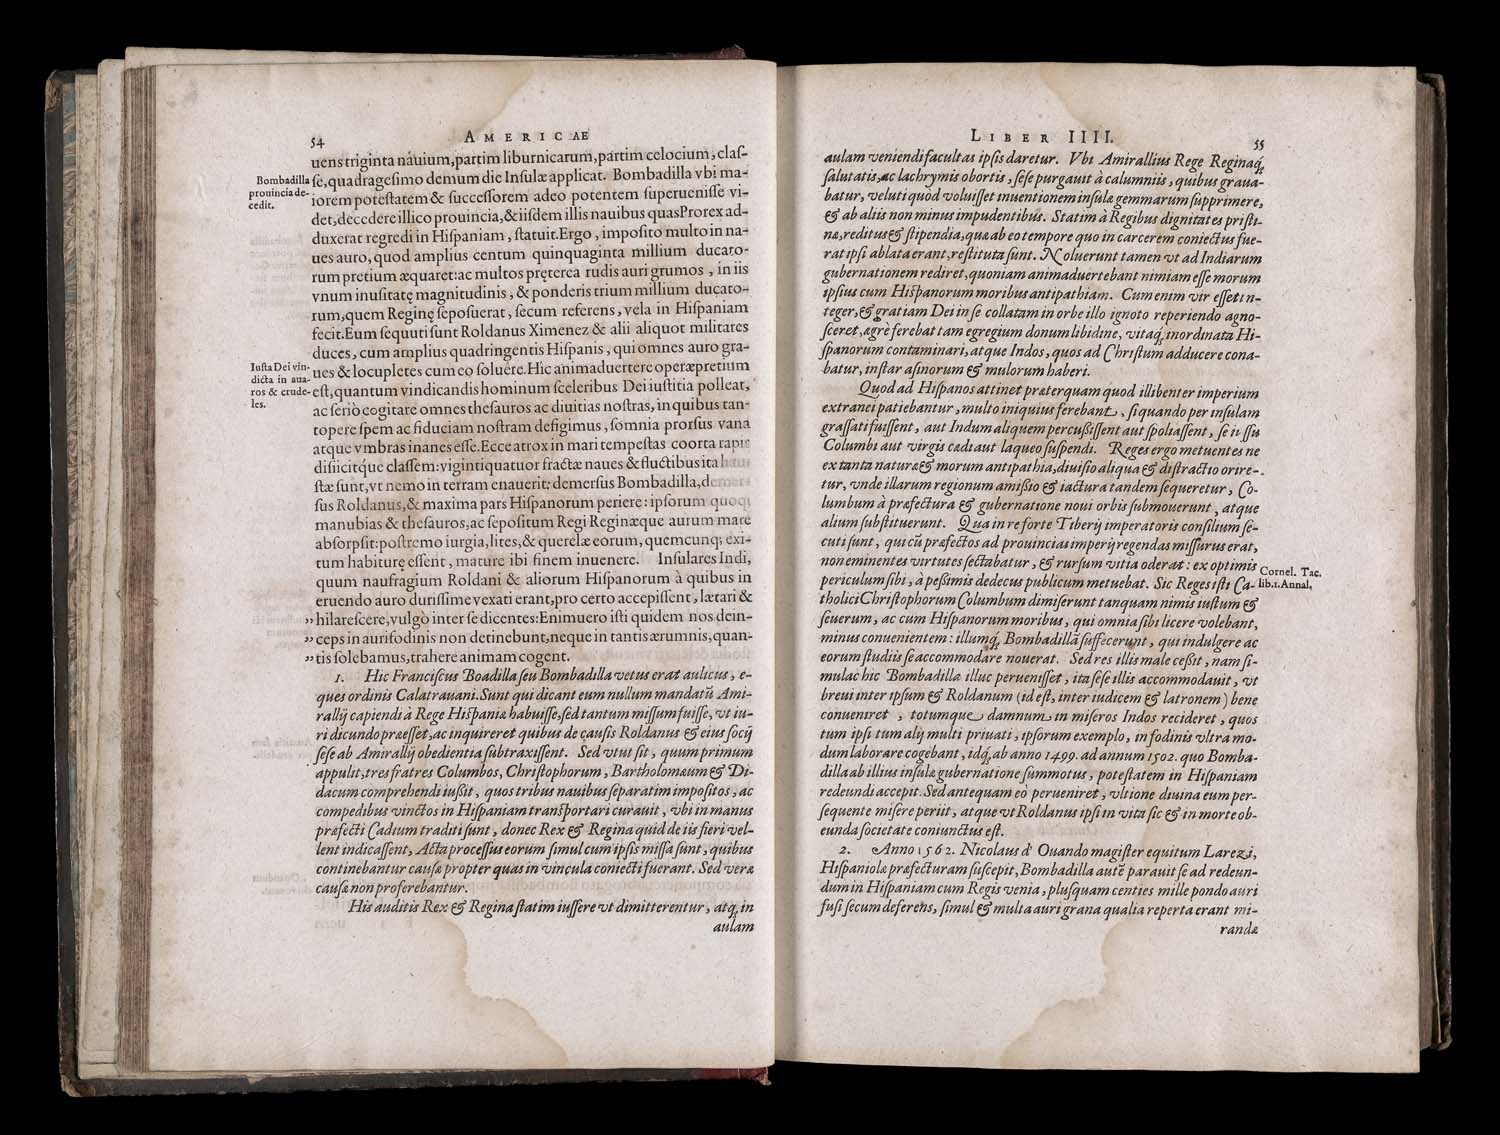 54
AMERICAE
uens triginta nauium, partim liburnicarum, partim celocium, claſ-
ſe, quadrageſimo demum die Inſulæ applicat. Bombadilla vbi ma-
iorem poteſtatem & ſucceſſorem adeo potentem ſuperueniſſe vi-
det, decedere illico prouincia, & iiſdem illis nauibus quas Prorex ad-
duxerat regredi in Hiſpaniam, ſtatuit. Ergo, impoſito multo in na-
ues auro, quod amplius centum quinquaginta millium ducato-
rum pretium æquaret: ac multos pręterea rudis auri grumos, in iis
vnum inuſitatę magnitudinis, & ponderis trium millium ducato-
rum, quem Reginę ſepoſuerat, ſecum referens, vela in Hiſpaniam
fecit. Eum ſequuti ſunt Roldanus Ximenez & alii aliquot militares
duces, cum amplius quadringentis Hiſpanis, qui omnes auro gra-
ues & locupletes cum eo ſoluêre. Hic animaduertere operæpretium
eſt, quantum vindicandis hominum ſceleribus Dei iuſtitia polleat,
ac ſeriò cogitare omnes theſauros ac diuitias noſtras, in quibus tan-
topere ſpem ac fiduciam noſtram defigimus, ſomnia prorſus vana
atque vmbras inanes eſſe. Ecce atrox in mari tempeſtas coorta rapit
diſiicitq́ue claſſem: viginti quatuor fractæ naues & fluctibus ita hau-
ſtæ ſunt, vt nemo in terram enauerit: demerſus Bombadilla, demer-
ſus Roldanus, & maxima pars Hiſpanorum periere: ipſorum quoq;
manubias & theſauros, ac ſepoſitum Regi Reginæque aurum mare
abſorpſit: poſtremo iurgia, lites, & querelæ eorum, quemcunq; exi-
tum habituрę eſſent, mature ibi finem inuenere. Inſulares Indi,
quum naufragium Roldani & aliorum Hiſpanorum à quibus in
eruendo auro duriſſime vexati erant, pro certo accepiſſent, lætari &
„ hilareſcere, vulgò inter ſe dicentes: Enimuero iſti quidem nos dein-
„ ceps in aurifodinis non detinebunt, neque in tantis ærumnis, quan-
„ tis ſolebamus, trahere animam cogent.
1. Hic Franciſcus Boadilla ſeu Bombadilla vetus erat aulicus, e-
ques ordinis Calatrauani. Sunt qui dicant eum nullum mandatũ Ami-
rallij capiendi à Rege Hiſpaniæ habuiſſe, ſed tantum miſſum fuiſſe, vt iu-
ri dicundo præeſſet, ac inquireret quibus de cauſis Roldanus & eius ſocij
ſeſe ab Amirallij obedientia ſubtraxiſſent. Sed vtut ſit, quum primum
appulit, tres fratres Columbos, Chriſtophorum, Bartholomæum & Di-
dacum comprehendi iußit, quos tribus nauibus ſeparatim impoſitos, ac
compedibus vinctos in Hiſpaniam transportari curauit, vbi in manus
præfecti Cadium traditi ſunt, donec Rex & Regina quid de iis fieri vel-
lent indicaſſent, Acta proceſſus eorum ſimul cum ipſis miſſa ſunt, quibus
continebantur cauſæ propter quas in vincula coniecti fuerant. Sed veræ
cauſæ non proferebantur.
His auditis Rex & Regina ſtatim iuſſere vt dimitterentur, atq́ in
aulam
Bombadilla
prouincia de-
cedit.
Iuſta Dei vin-
dicta in aua-
ros & crude-
les.
LIBER IIII.
55
aulam veniendi facultas ipſis daretur. Vbi Amirallius Rege Reginaq́
ſalutatis, ac lachrymis obortis, ſeſe purgauit à calumniis, quibus graua-
batur, veluti quòd voluiſſet inuentionem inſulæ gemmarum ſupprimere,
& ab aliis non minus impudentibus. Statim à Regibus dignitates priſti-
næ, reditus & ſtipendia, quæ ab eo tempore quo in carcerem coniectus fue-
rat ipſi ablata erant, reſtituta ſunt. Noluerunt tamen vt ad Indiarum
gubernationem rediret, quoniam animaduertebant nimiam eſſe morum
ipſius cum Hiſpanorum moribus antipathiam. Cum enim vir eſſet in-
teger, & gratiam Dei in ſe collatam in orbe illo ignoto reperiendo agno-
ſceret, agrè ferebat tam egregium donum libidine, vitaq́ inordinata Hi-
ſpanorum contaminari, atque Indos, quos ad Chriſtum adducere cona-
batur, inſtar aſinorum & mulorum haberi.
Quod ad Hiſpanos attinet præterquam quod illibenter imperium
extranei patiebantur, multo iniquius ferebant, ſi quando per inſulam
graſſati fuiſſent, aut Indum aliquem percußiſſent aut ſpoliaſſent, ſe iuſſu
Columbi aut virgis cædi aut laqueo ſuſpendi. Reges ergo metuentes ne
ex tanta naturæ & morum antipathia, diuiſio aliqua & diſtractio orire-
tur, vnde illarum regionum amißio & iactura tandem ſequeretur, Co-
lumbum à præfectura & gubernatione noui orbis ſubmouerunt, atque
alium ſubſtituerunt. Qua in re forte Tiberij imperatoris conſilium ſe-
cuti ſunt, qui cũ præfectos ad prouincias imperij regendas miſſurus erat,
non eminentes virtutes ſectabatur, & rurſum vitia oderat: ex optimis
periculum ſibi, à peßimis dedecus publicum metuebat. Sic Reges iſti Ca-
tholici Chriſtophorum Columbum dimiſerunt tanquam nimis iuſtum &
ſeuerum, ac cum Hiſpanorum moribus, qui omnia ſibi licere volebant,
minus conuenientem: illumq́ Bombadillã ſuffecerunt, qui indulgere ac
eorum ſtudiis ſe accommodare nouerat. Sed res illis male ceßit, nam ſi-
mulac hic Bombadilla illuc perueniſſet, ita ſeſe illis accommodauit, vt
breui inter ipſum & Roldanum (id eſt, inter iudicem & latronem) bene
conueniret, totumque damnum in miſeros Indos recideret, quos
tum ipſi tum alij multi priuati, ipſorum exemplo, in fodinis vltra mo-
dum laborare cogebant, idq́ ab anno 1499. ad annum 1502. quo Bomba-
dilla ab illius inſulæ gubernatione ſummotus, poteſtatem in Hiſpaniam
redeundi accepit. Sed antequam eò perueniret, vltione diuina eum per-
ſequente miſere periit, atque vt Roldanus ipſi in vita ſic & in morte ob-
eunda ſocietate coniunctus eſt.
2. Anno 1562. Nicolaus d' Ouando magiſter equitum Larezi,
Hiſpaniolæ præfecturam ſuſcepit, Bombadilla autẽ parauit ſe ad redeun-
dum in Hiſpaniam cum Regis venia, pluſquam centies mille pondo auri
fuſi ſecum deferens, ſimul & multa auri grana qualia reperta erant mi-
randæ
Cornel. Tac.
lib.1. Annal.